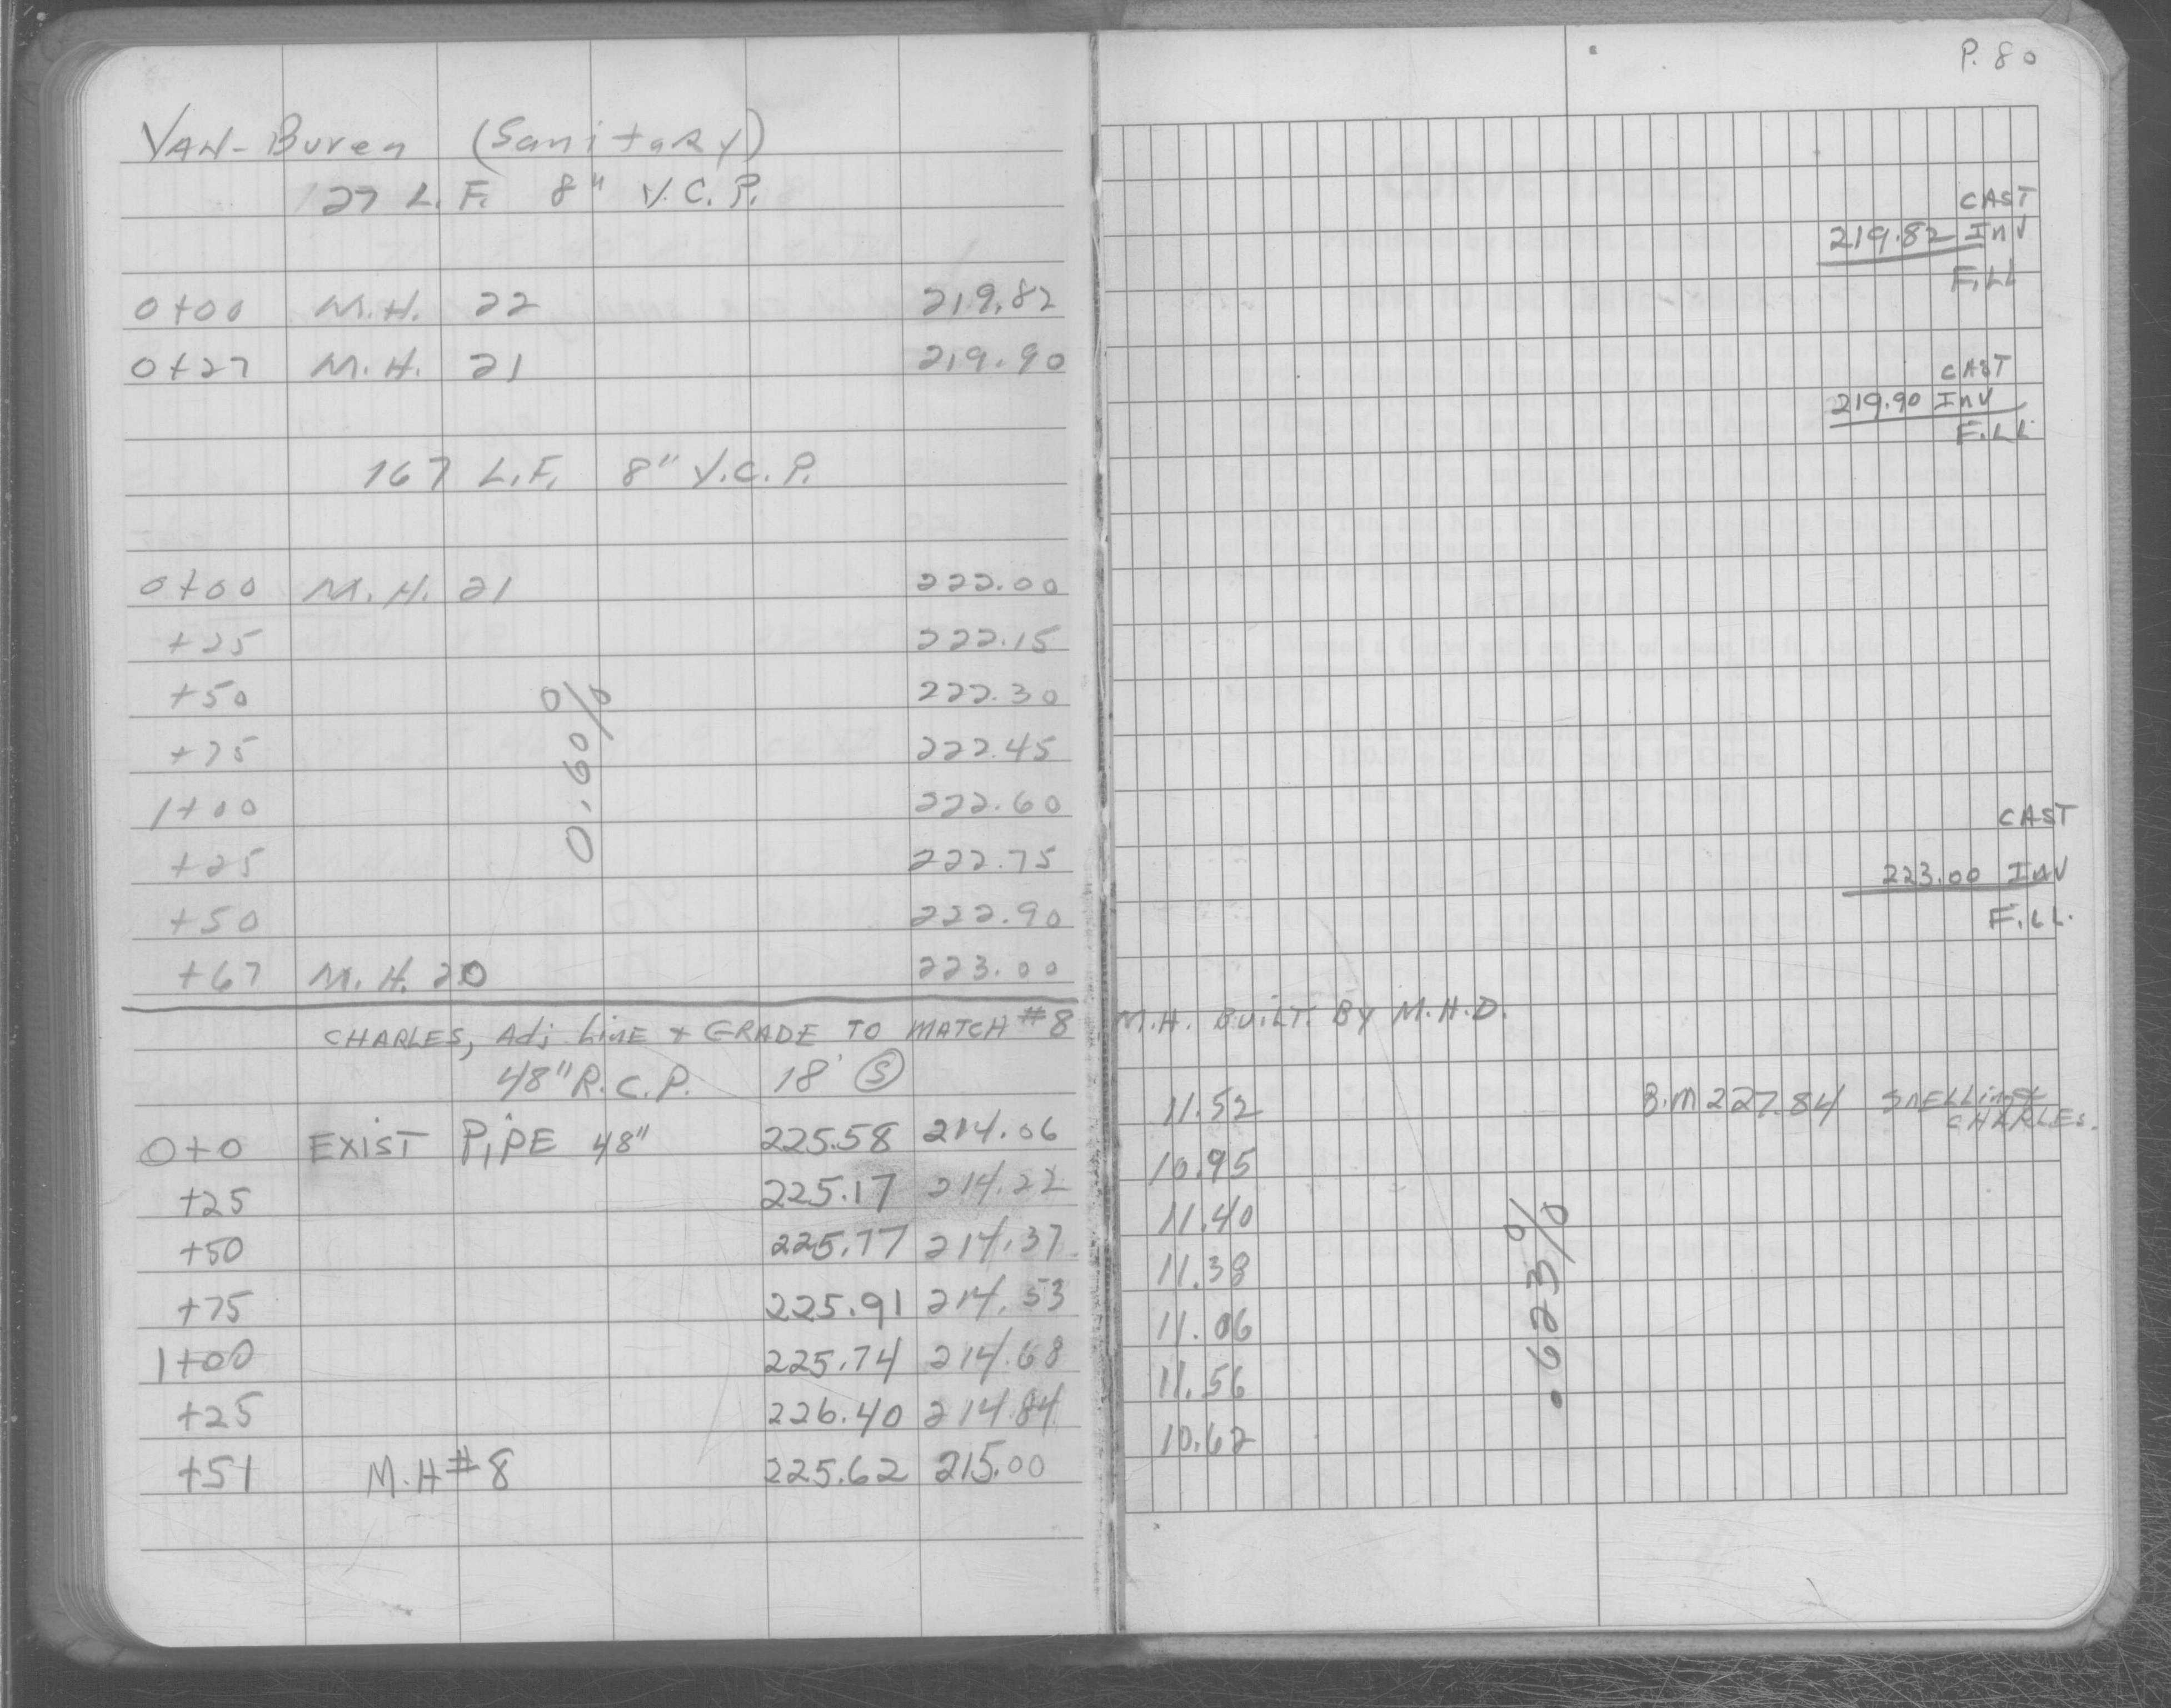 P. 80
VAN-Buren (SanitaRy)
27 L.F. 8" V.C.P.
0+00 M.H. 22 219.82
0+27 M.H. 21 219.90
167 L.F. 8" V.C.P.
0+00 M.H. 21 222.00
+25 222.15
+50 222.30
+75 222.45
1+00 222.60
+25 222.75
+50 222.90
+67 M.H. 20 223.00
0.60%
CHARLES, Adj LinE + GRADE TO MATCH #8
48" R.C.P. 18' S
0+0 EXIST PiPE 48" 225.58 214.06
+25 225.17 214.22
+50 225.77 214.37
+75 225.91 214.53
1+00 225.74 214.68
+25 226.40 214.84
+51 M.H #8 225.62 215.00
CAST
219.82 Inv
FiLL
CAST
219.90 Inv
FiLL
CAST
223.00 Inv
FiLL.
M.H. BuiLT. By M.H.D.
11.52 B.M 227.84 SnELLing &
CHARLES.
10.95
11.40
11.38
11.06
11.56
10.62
.623%